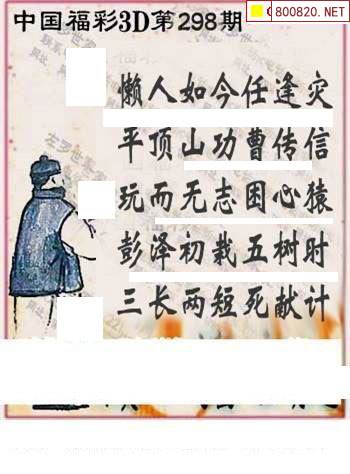 800820.NET
中国福彩3D第298期
懒人如今任逢灾
平顶山功曹传信
玩而无志困心猿
彭泽初栽五树时
三长两短死献计